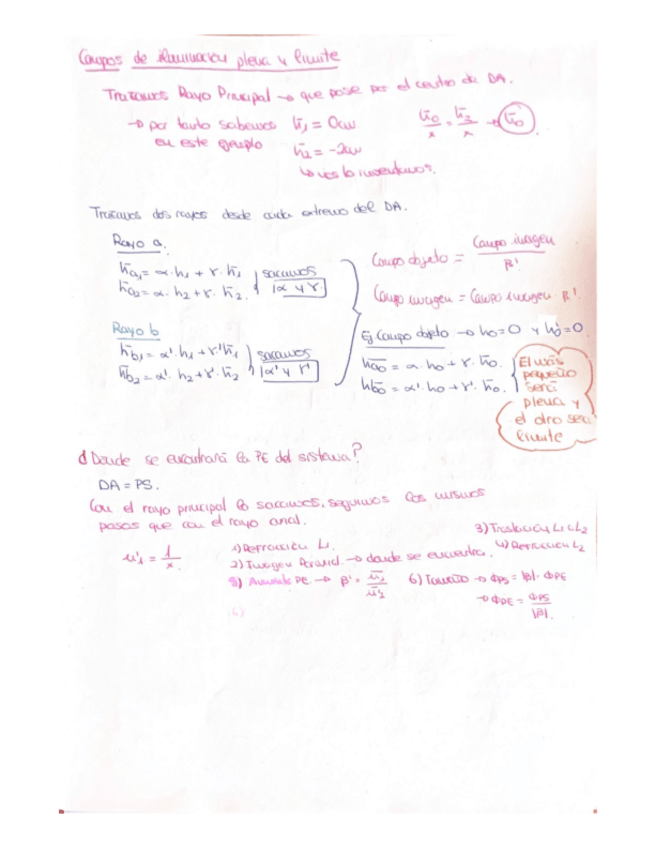 Campos de iluminación plena y límite
Trazamos Rayo Principal → que pase por el centro de DA.
→ por tanto sabemos en este ejemplo
h̄₁ = 0cm
h̄₂ = -2cm
↳ nos lo inventamos.
h̄₀/x = h̄₂/x → h̄₀
Trazamos dos rayos desde cada extremo del DA.
Rayo a.
h̄a₁ = α·h₁ + γ·h̄₁
h̄a₂ = α·h₂ + γ·h̄₂
sacamos
α y γ
Rayo b
h̄b₁ = α'·h₁ + γ'·h̄₁
h̄b₂ = α'·h₂ + γ'·h̄₂
sacamos
α' y γ'
Campo objeto = Campo imagen / β'
Campo imagen = Campo imagen β'
Ej campo objeto → h₀=0 y h₀'=0
h̄a₀ = α·h₀ + γ·h̄₀.
h̄b₀ = α'·h₀ + γ'·h̄₀.
El más
pequeño
será
plena y
el otro será
límite
¿Dónde se encontrará la PE del sistema?
DA = PS.
Con el rayo principal lo sacamos, seguimos los mismos
pasos que con el rayo axial.
u'₁ = 1/x
1) Refracción L₁
2) Imagen Paraxial → donde se encuentra.
3) Traslación L₁ L₂
4) Refracción L₂
5) Aumento PE → β' = ū₁/ū'₂
6) Tamaño → ΦPS = |β|·ΦPE
→ ΦPE = ΦPS/|β|.